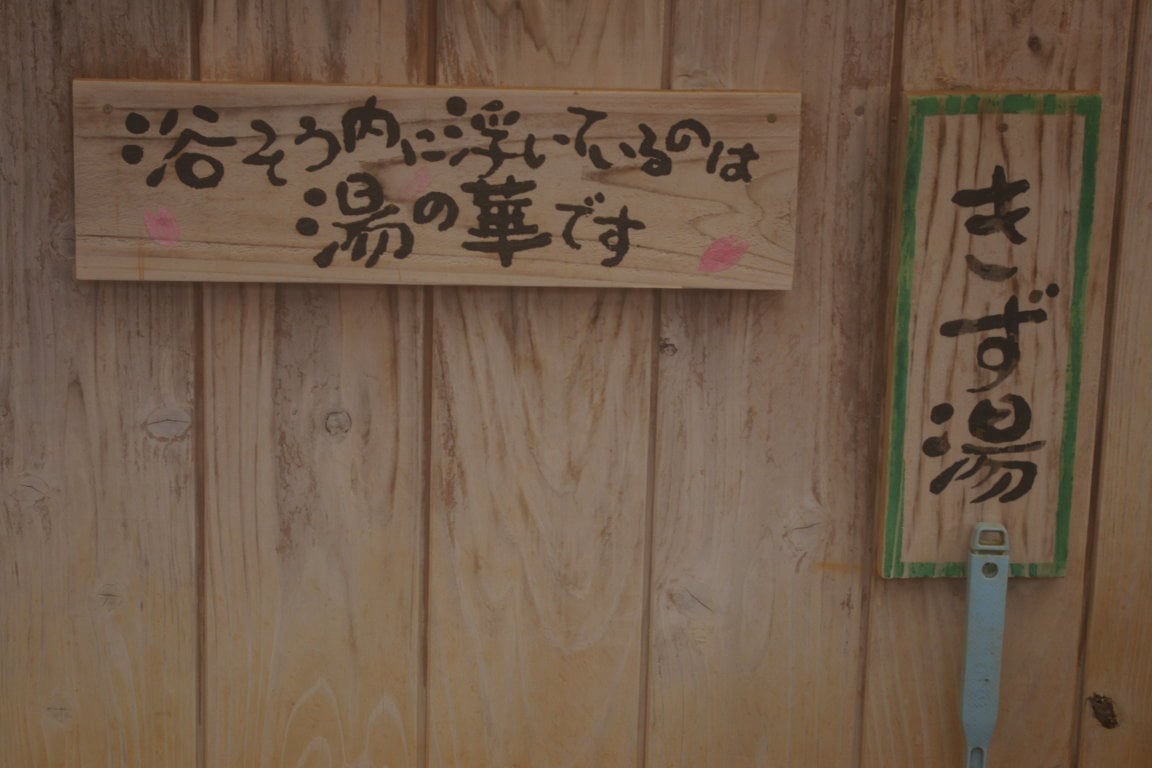 浴そう内に浮いているのは
湯の華です
きず湯